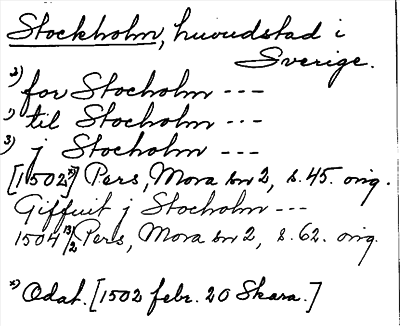 Stockholm, huvudstad i
Sverige.
2) for Stocholm ---
1) til Stocholm ---
3) j Stocholm ---
[1502 x)] Pers, Mora sn 2, s. 45. orig.
Giffuit j Stocholm ---
1504 13/2 Pers, Mora sn 2, s. 62. orig.
x) Odat. [1502 febr. 20 Skara.]